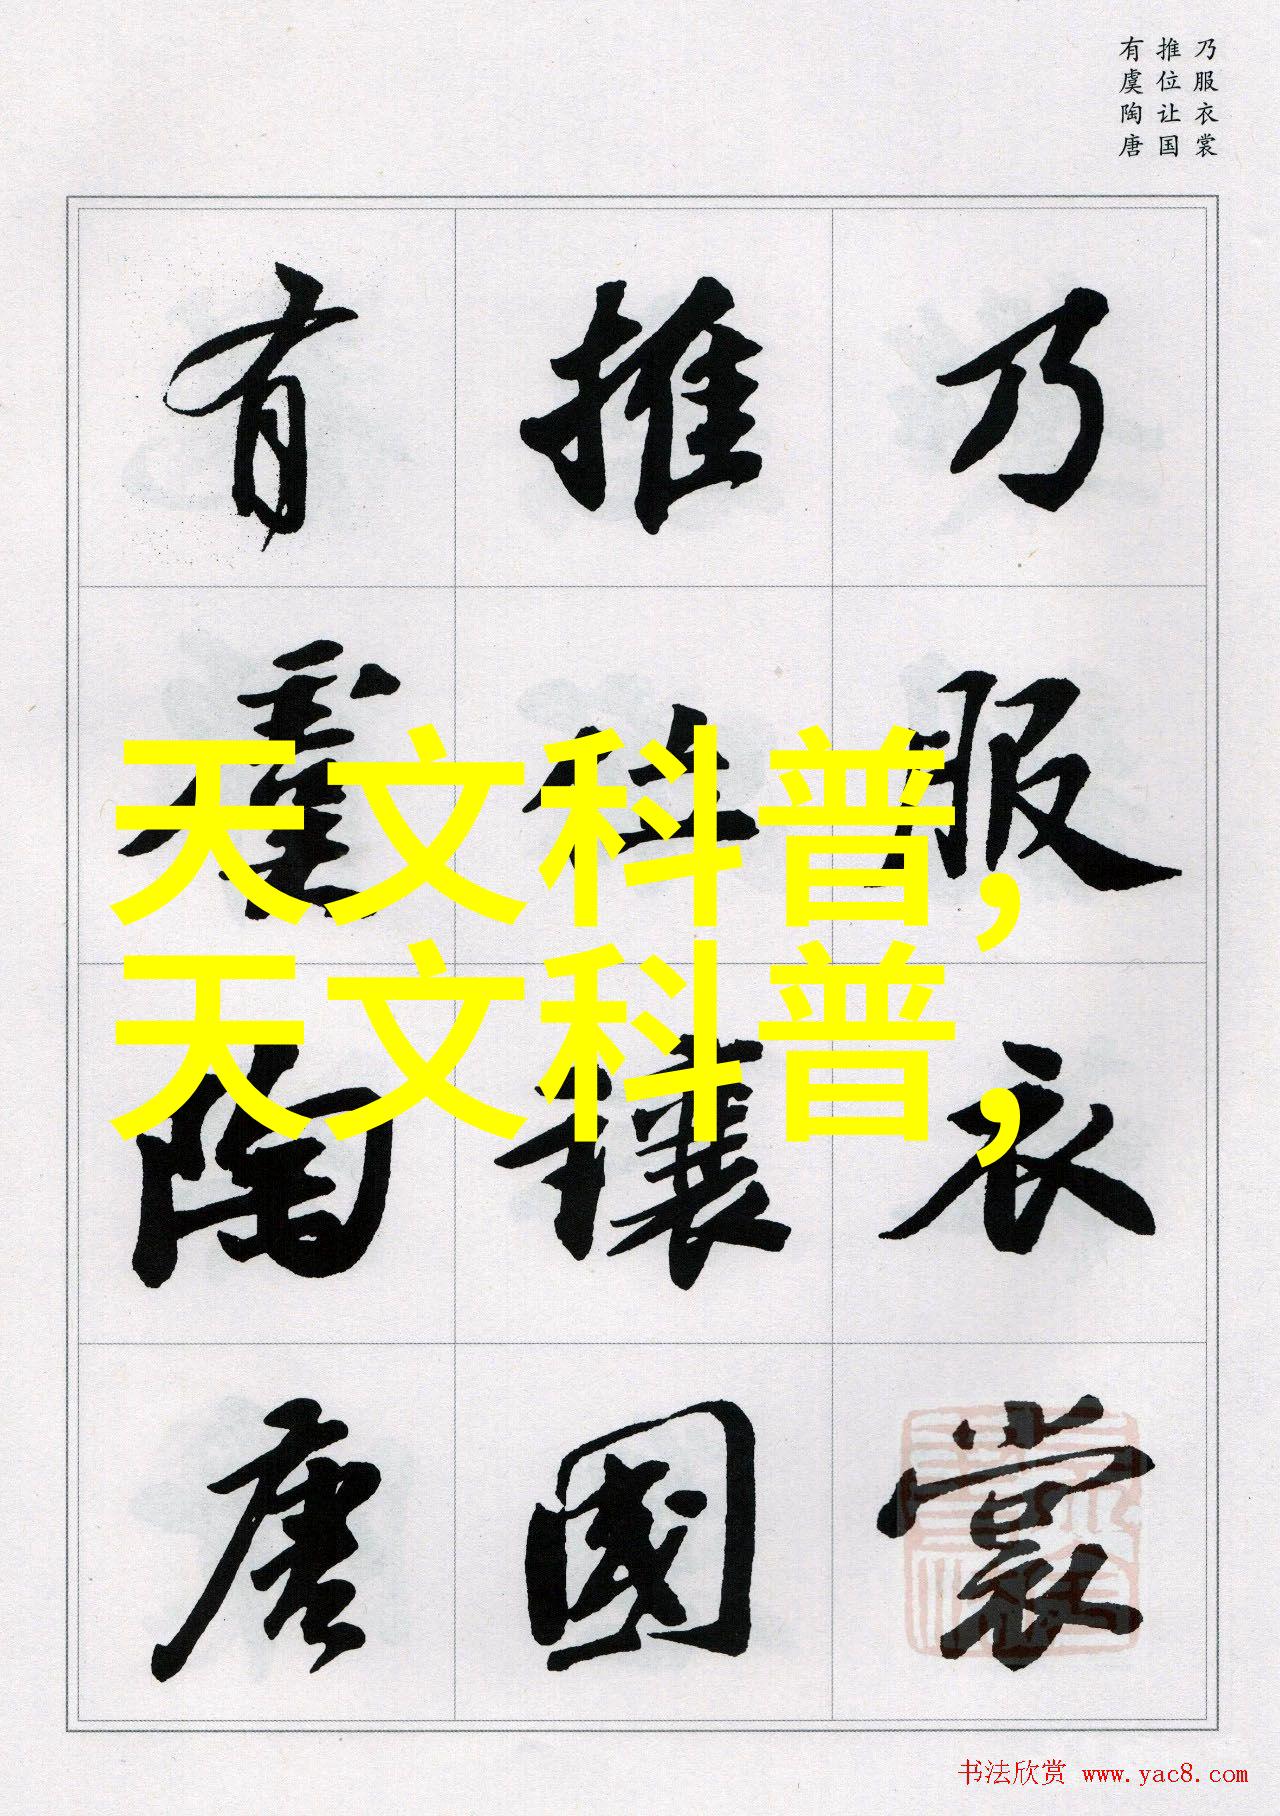 乃服衣裳
推位让国
有虞陶唐
乃服衣裳
推位讓國
有虞陶唐
天文科普，
天文科普，
书法欣赏 www.yac8.com